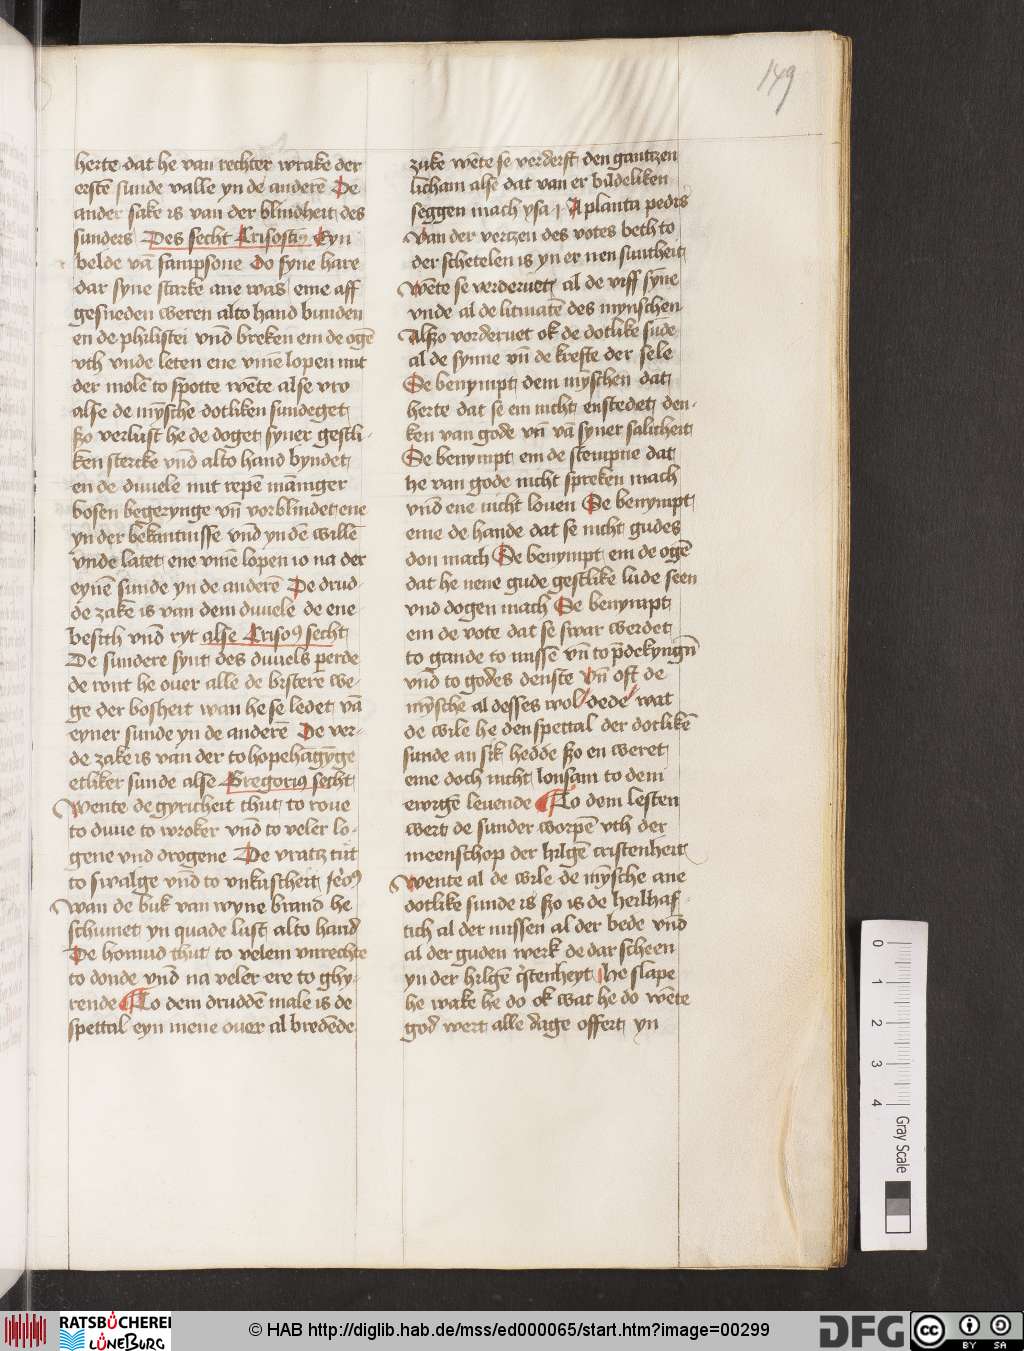 149
herte dat he van rechter wrake der
erstē sunde valle yn de anderē De
ander sake is van der blindheit des
sunders Des secht Crisostꝰ Eyn
belde vā sampsone Do syne hare
dar syne starke ane was eme aff
gesneden weren alto hand bunden
en de philistei vnd breken em de ogē
vth vnde leten ene vmē lopen mit
der molē to spotte wēte alse vro
alse de mȳsche dotliken sundeget
szo verlust he de doget syner gestli-
ken stercke vnd alto hand byndet
en de duuele mit repē māniger
bosen begerynge vn̄ vorblindet ene
yn der bekantnisse vnd yn dē willē
vnde latet ene vmē lopen io na der
eynē sunde yn de anderē De drud-
de zake is van dem duuele de ene
besith vnd ryt alse Crisoꝰ secht
De sundere synt des duuels perde
de ront he ouer alle de bistere we-
ge der bosheit wan he se ledet vā
eyner sunde yn de anderē De ver-
de zake is van der to hopehāgȳge
etliker sunde alse Gregoriꝰ secht
Wente de gyricheit thut to roue
to duue to wroker vnd to veler lo-
gene vnd drogene De vratz tút
to swalge vnd to vnkuscheit
wan de buk van wyne brand he
schumet yn quade lust alto hand
De homud thut to velem vnrechte
to donde vnd na veler ere to ghy-
rende To dem druddē male is de
spettal eyn mene ouer al bredēde
zuke wēte se verderft den gantzen
licham alse dat van er bildeliken
seggen mach ysa i A planta pedis
Van der verszen des votes beth to
der schetelen is yn er nen suntheit
Wēte se verderuet al de viff sȳne
vnde al de litmatē des mynschen
Alszo vorderuet ok de dotlike sūde
al de synne vn̄ de krefte der sele
Se benympt dem mȳschen dat
herte dat se em nicht enstedet den-
ken van gode vn̄ vā syner salicheit
Se benympt em de stempne dat
he van gode nicht spreken mach
vnd ene nicht louen Se benympt
eme de hande dat se nicht gudes
don mach Se benympt em de ogē
dat he nene gude gestlike lude seen
vnd dogen mach Se benympt
em de vote dat se swar werdet
to gande to missē vn̄ to p̄dekyngn̄
vnd to godes denste Vn̄ oft de
mȳsche al desses wol dede wat
de wile he den spettal der dotlikē
sunde an sik hedde szo en weret
eme doch nicht lonsam to dem
ewigē leuende To dem lesten
wert de sunder worpē vth der
meenschop der hilgē cristenheit
Wente al de wile de mȳsche ane
dotlike sunde is szo is de herlhaf-
tich al der missen al der bede vnd
al der guden werk de dar scheen
yn der hilgē cistenheyt he slape
he wake he do ok wat he do wēte
god wert alle dage offert yn
0
1
2
3
4
Gray Scale
RATSBÜCHEREI
LÜNEBURG
© HAB http://diglib.hab.de/mss/ed000065/start.htm?image=00299
DFG
CC BY SA